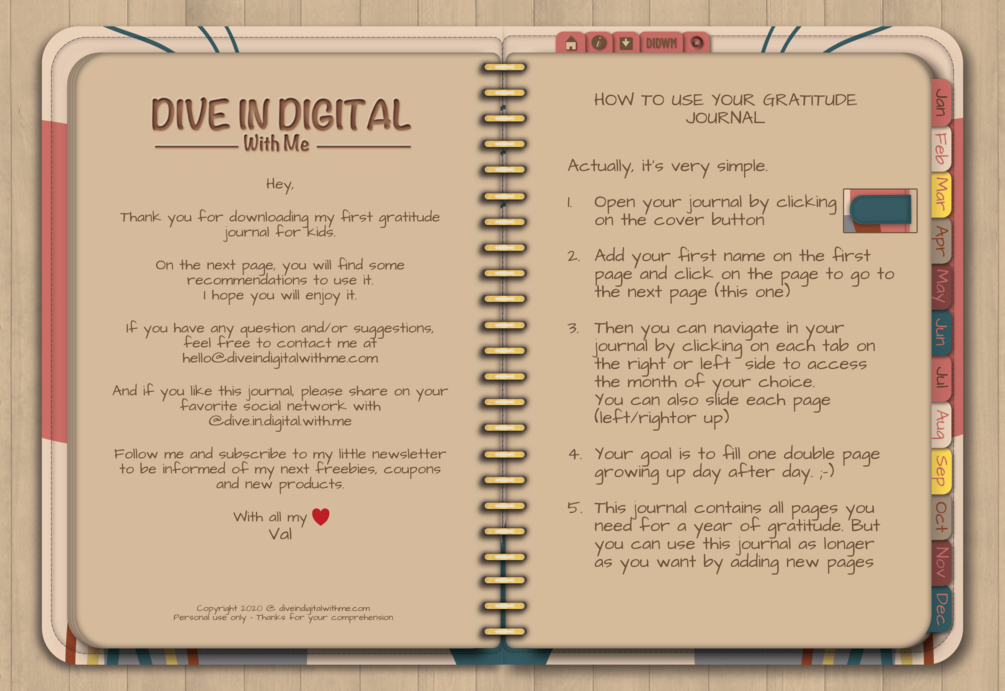 DIDWM
DIVE IN DIGITAL
With Me
Hey,
Thank you for downloading my first gratitude
journal for kids.
On the next page, you will find some
recommendations to use it.
I hope you will enjoy it.
If you have any question and/or suggestions,
feel free to contact me at
hello@diveindigitalwithme.com
And if you like this journal, please share on your
favorite social network with
@dive.in.digital.with.me
Follow me and subscribe to my little newsletter
to be informed of my next freebies, coupons
and new products.
With all my ❤
Val
Copyright 2020 @ diveindigitalwithme.com
Personal use only - Thanks for your comprehension
HOW TO USE YOUR GRATITUDE
JOURNAL
Actually, it's very simple.
1. Open your journal by clicking
on the cover button
2. Add your first name on the first
page and click on the page to go to
the next page (this one)
3. Then you can navigate in your
journal by clicking on each tab on
the right or left side to access
the month of your choice.
You can also slide each page
(left/rightor up)
4. Your goal is to fill one double page
growing up day after day. ;-)
5. This journal contains all pages you
need for a year of gratitude. But
you can use this journal as longer
as you want by adding new pages
Jan
Feb
Mar
Apr
May
Jun
Jul
Aug
Sep
Oct
Nov
Dec